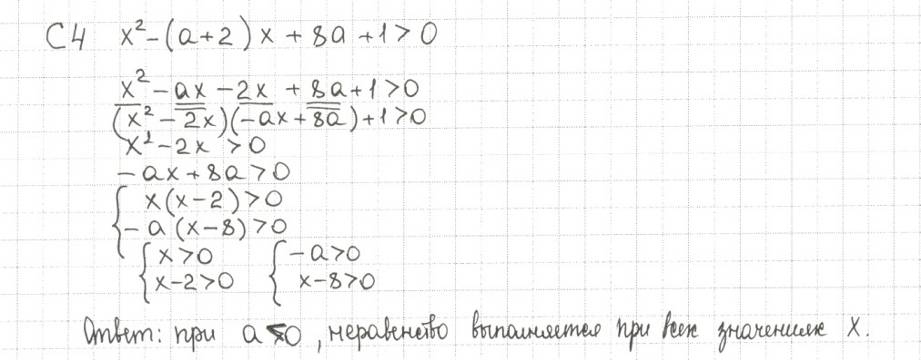 С4 x² - (a+2)x + 8a + 1 > 0
x² - ax - 2x + 8a + 1 > 0
(x² - 2x)(-ax + 8a) + 1 > 0
x² - 2x > 0
-ax + 8a > 0
{ x(x-2) > 0
{ -a(x-8) > 0
{ x > 0 { -a > 0
{ x-2 > 0 { x-8 > 0
Ответ: при a < 0, неравенство выполняется при всех значениях x.